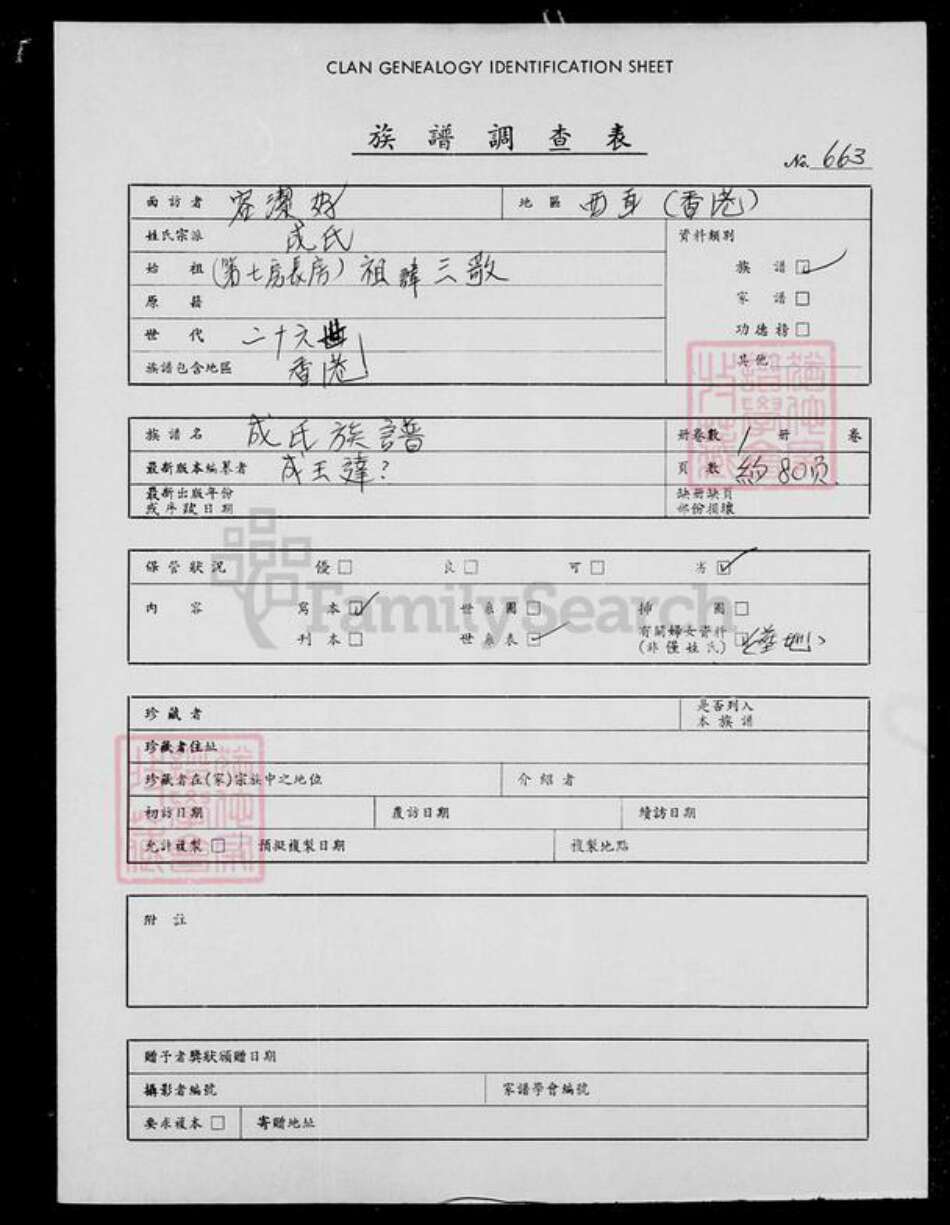 CLAN GENEALOGY IDENTIFICATION SHEET
族譜調查表
No. 663
面訪者 容潔好 地區 西貢 (香港)
姓氏宗派 成氏 資料類別
始祖 (第七房長房) 祖諱三敬 族譜
原籍 家譜
世代 二十六世 功德榜
族譜包含地區 香港 其他
族譜名 成氏族譜 冊卷數 1 冊 卷
最新版本編纂者 成玉達? 頁數 約80页
最新出版年份 缺冊缺頁
或序跋日期 部份損壞
保管狀況 優 良 可 劣
內容 寫本 世系圖 挿圖
刊本 世系表 有關婦女資料
(非僅姓氏)
珍藏者 是否列入
本族譜
珍藏者住址
珍藏者在(家)宗族中之地位 介紹者
初訪日期 覆訪日期 續訪日期
允許複製 預擬複製日期 複製地點
附註
贈予者獎狀頒贈日期
攝影者編號 家譜學會編號
要求複本 寄贈地址
FamilySearch